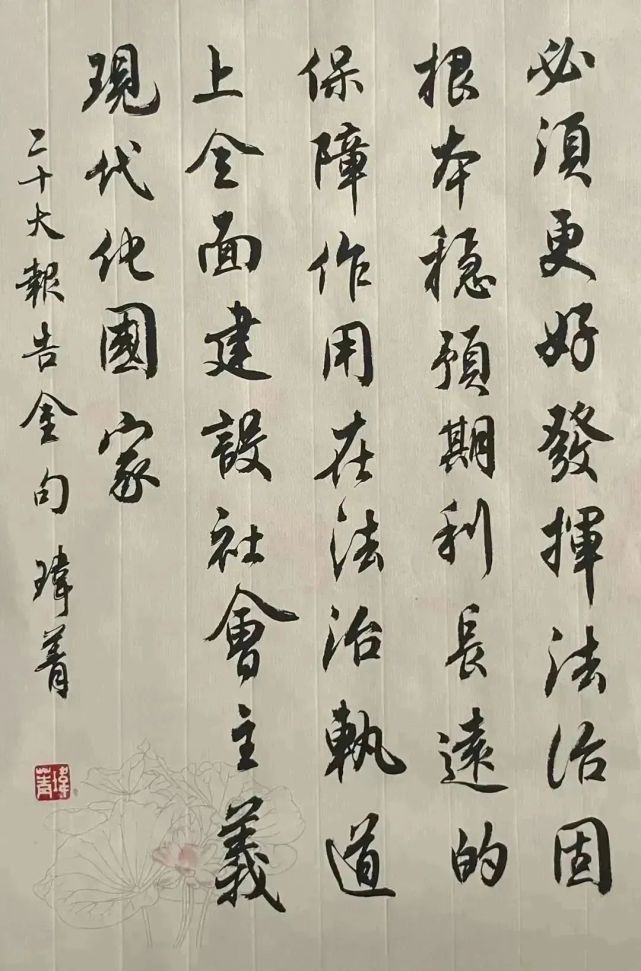 必須更好發揮法治固
根本穩預期利長遠的
保障作用在法治軌道
上全面建設社會主義
現代化國家
二十大報告金句 瑋菁
瑋菁